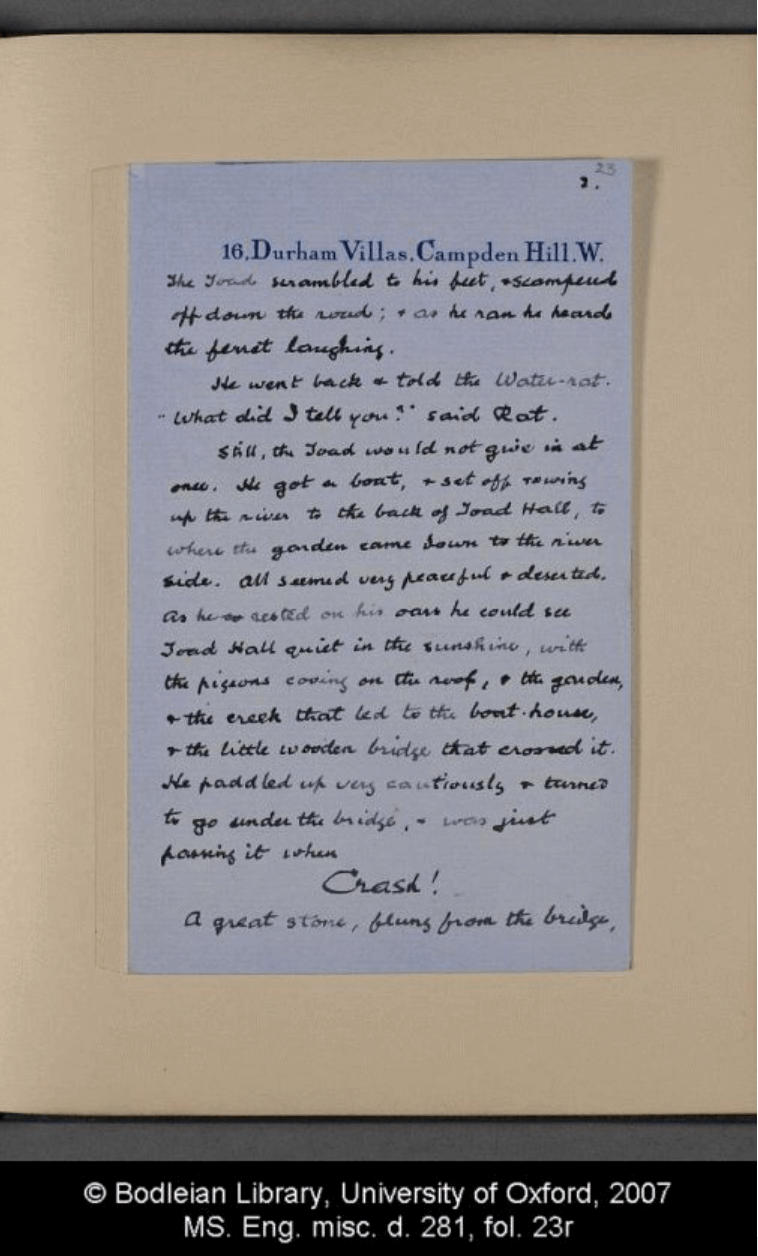 23
2.
16, Durham Villas, Campden Hill. W.
The Toad scrambled to his feet, & scampered
off down the road; & as he ran he heard
the ferret laughing.
He went back & told the Water-rat.
"What did I tell you?" said Rat.
Still, the Toad would not give in at
once. He got a boat, & set off rowing
up the river to the back of Toad Hall, to
where the garden came down to the river
side. All seemed very peaceful & deserted.
As he rested on his oars he could see
Toad Hall quiet in the sunshine, with
the pigeons cooing on the roof, & the garden,
& the creek that led to the boat-house,
& the little wooden bridge that crossed it.
He paddled up very cautiously & turned
to go under the bridge, & was just
passing it when
Crash!
A great stone, flung from the bridge,
© Bodleian Library, University of Oxford, 2007
MS. Eng. misc. d. 281, fol. 23r